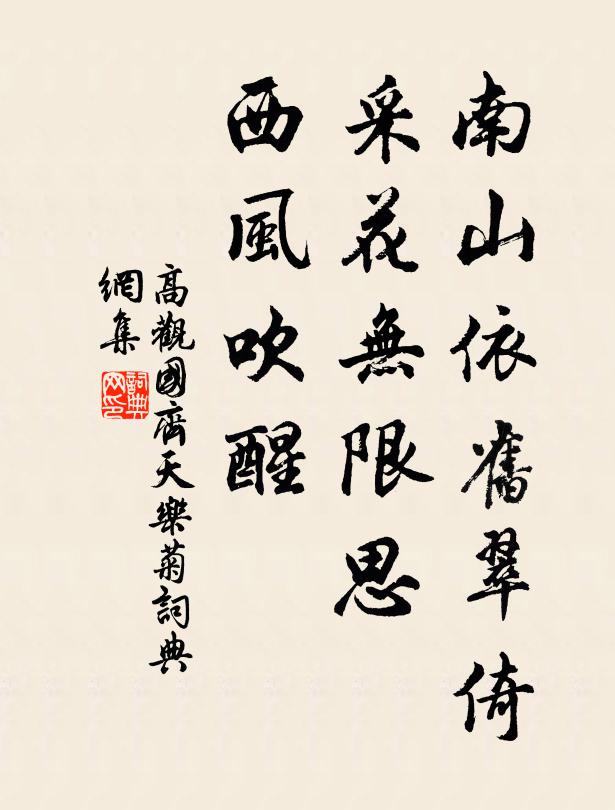 南山依舊翠倚
采花無限思
西風吹醒
高觀國齊天樂菊詞典
網集
詞典
网印